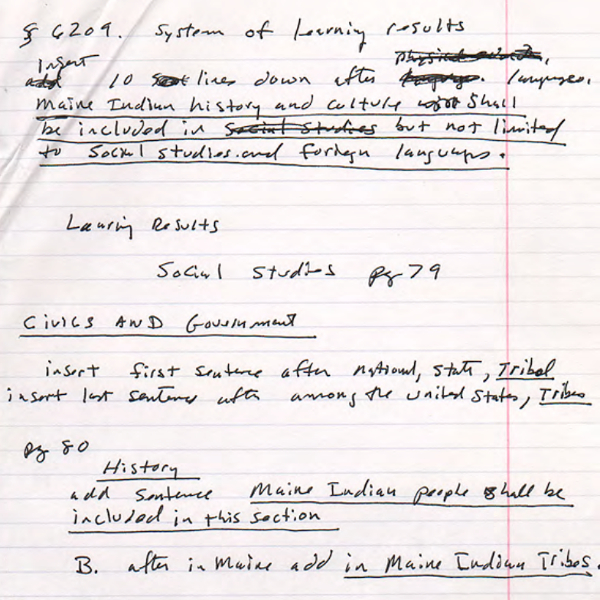 § 6209. System of Learning results
Insert
add 10 lines down after languages.
Maine Indian history and culture shall
be included in Social Studies but not limited
to Social studies and foriegn languages.
Learning Results
Social Studies pg 79
Civics AND Government
insert first sentence after national, state, Tribal
insert last sentence after among the united states, Tribes
pg 80
History
add sentence Maine Indian people shall be
included in this section
B. after in Maine add in Maine Indian Tribes.